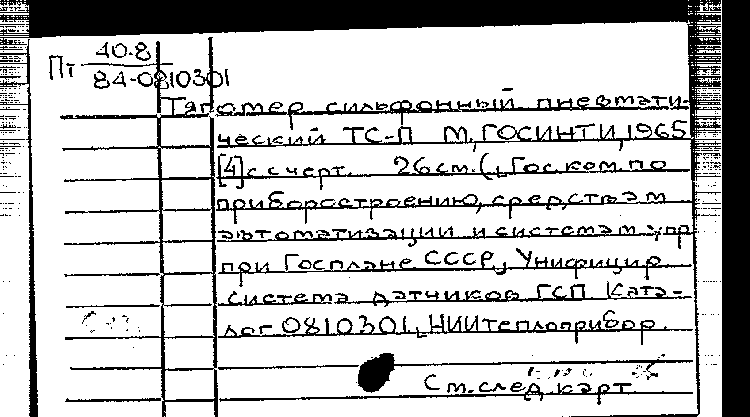 Пт 40.8
84-0810301
Тягомер сильфонный пневмати-
ческий ТС-П М, ГОСИНТИ, 1965
[4]с с черт. 26 см. (, Гос. ком. по
приборостроению, средствам
автоматизации и системам упр
при Госплане СССР, Унифицир
система датчиков ГСП Ката-
лог 0810301, НИИТеплоприбор.
См. след. карт